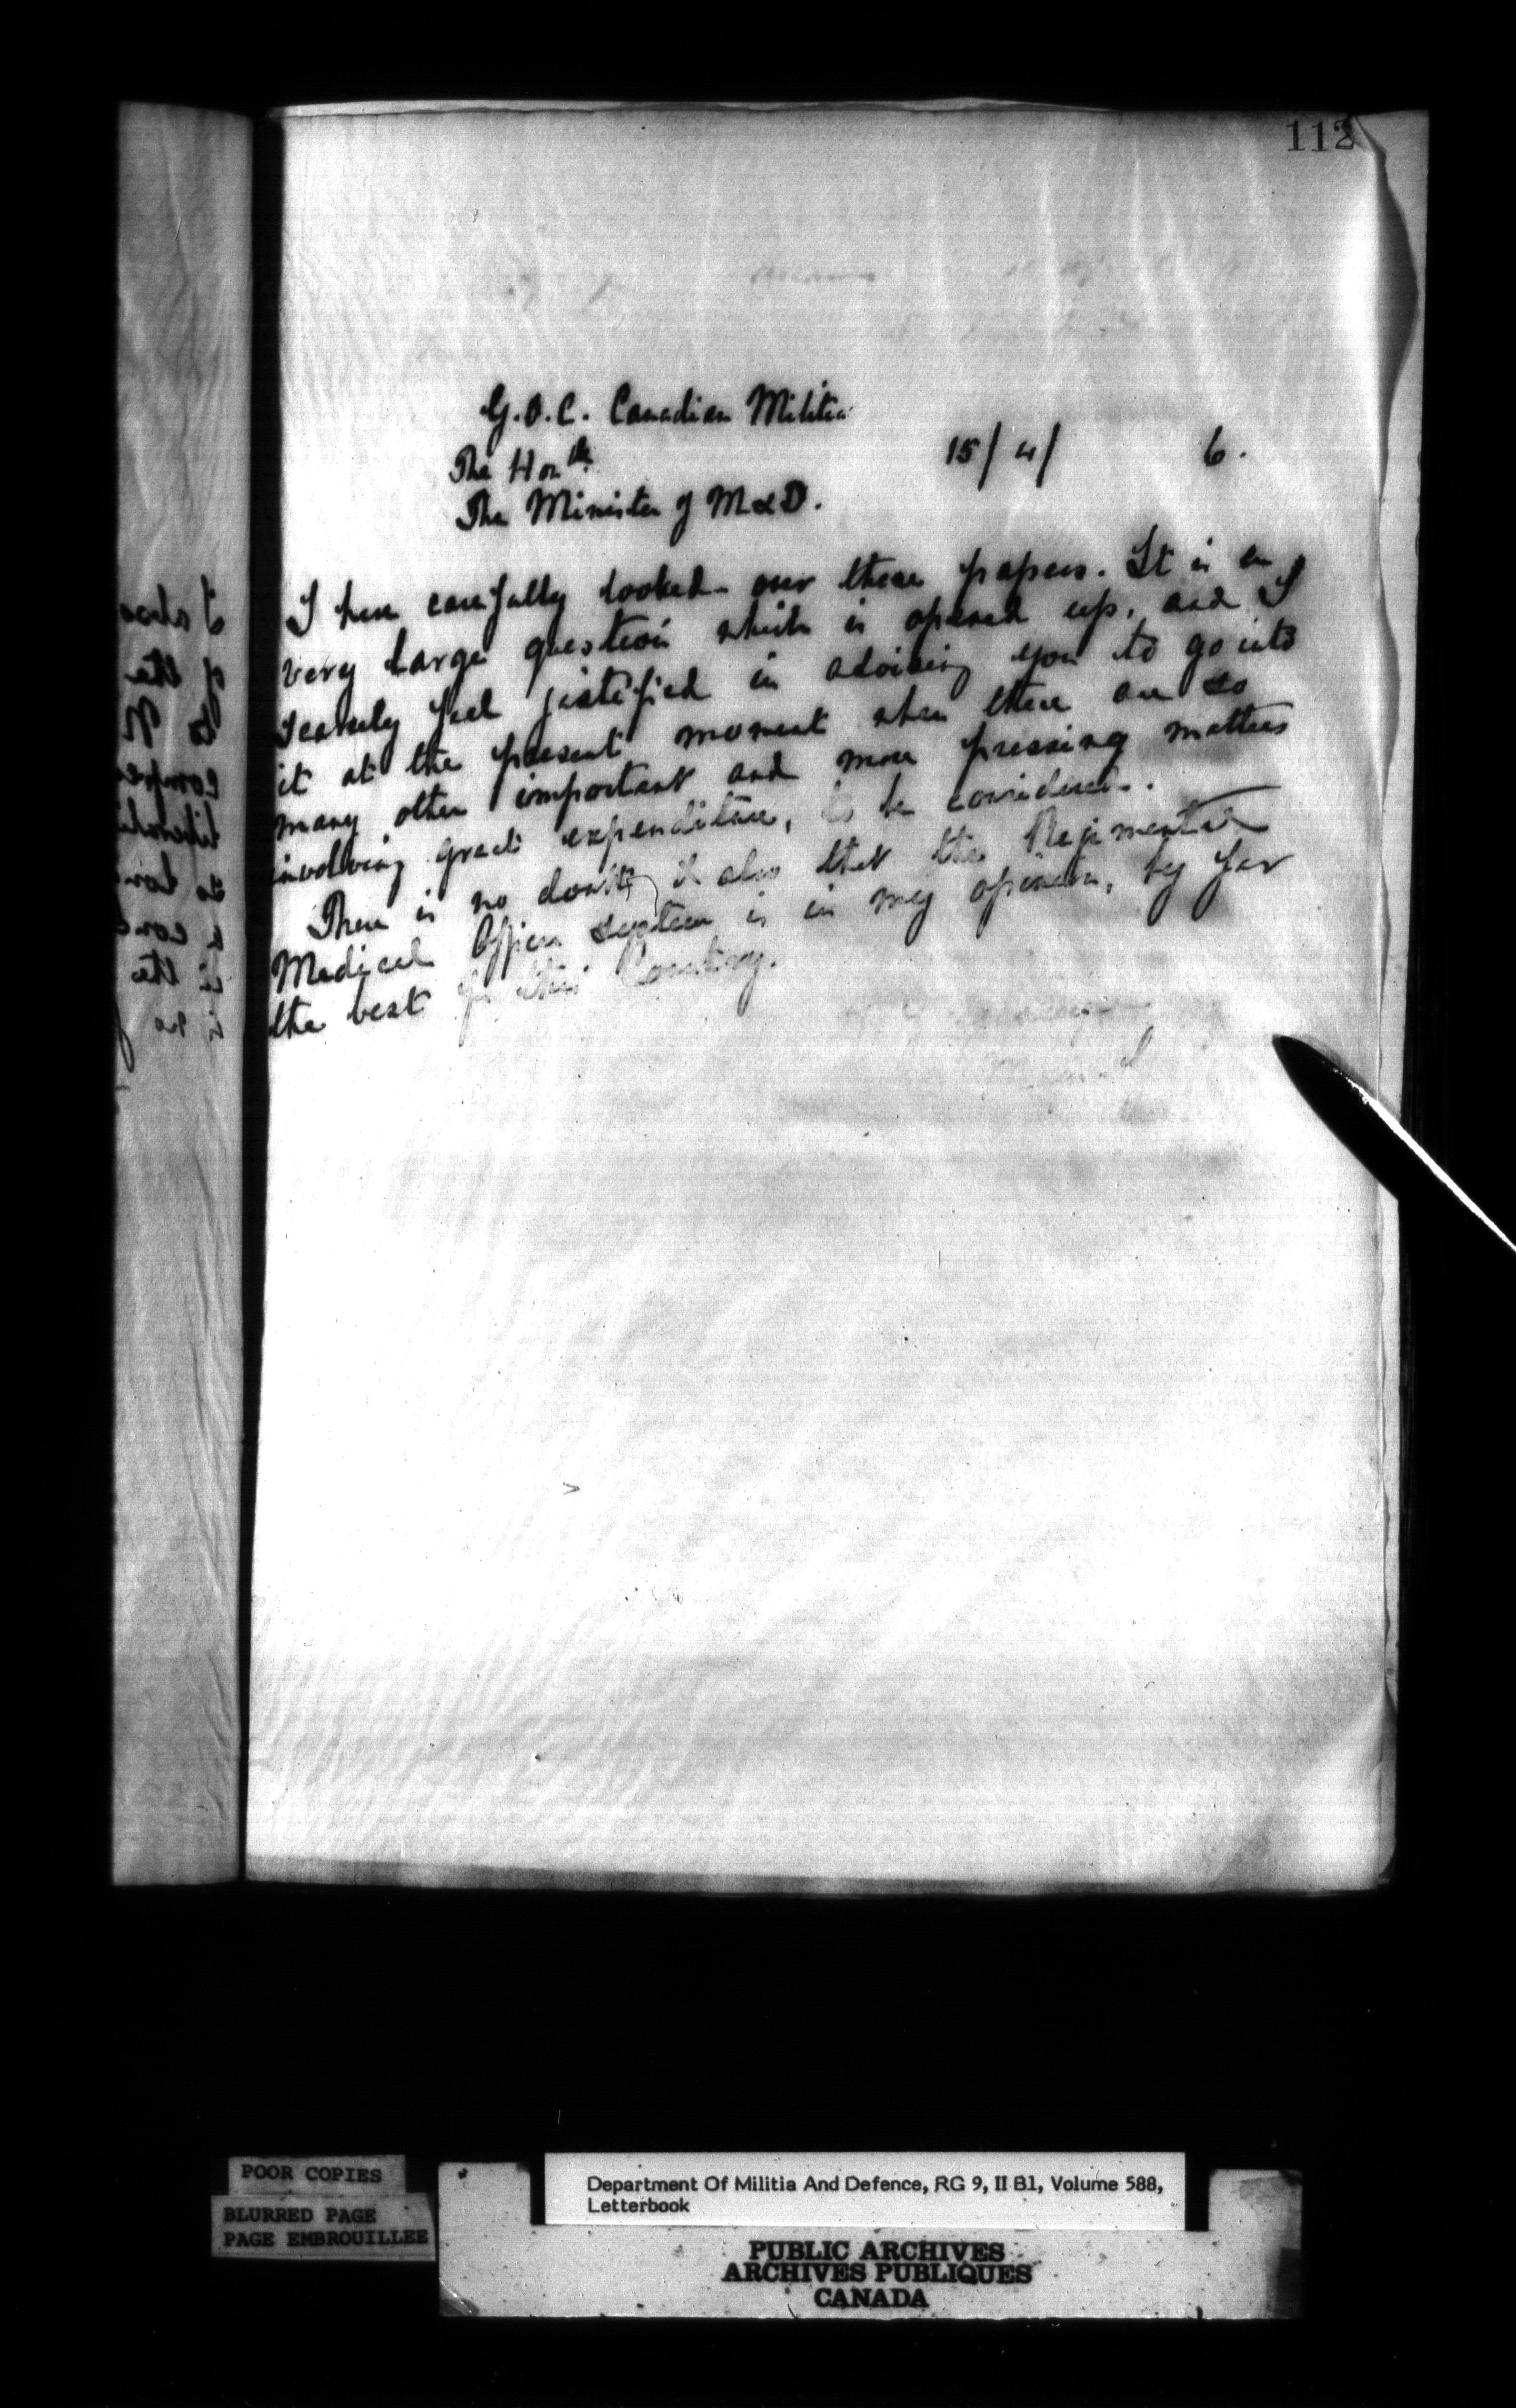 112
G.O.C. Canadian Militia
The Honble
15/4/ 6.
The Minister of M & D.
I have carefully looked over these papers. It is a
very large question which is opened up, and I
scarcely feel justified in advising you to go into
it at the present moment when there are so
many other important and more pressing matters
involving great expenditure, to be considered.
There is no doubt also that the Regimental
Medical Officer system is in my opinion, by far
the best for this Country.
POOR COPIES
BLURRED PAGE
PAGE EMBROUILLEE
Department Of Militia And Defence, RG 9, II B1, Volume 588,
Letterbook
PUBLIC ARCHIVES
ARCHIVES PUBLIQUES
CANADA